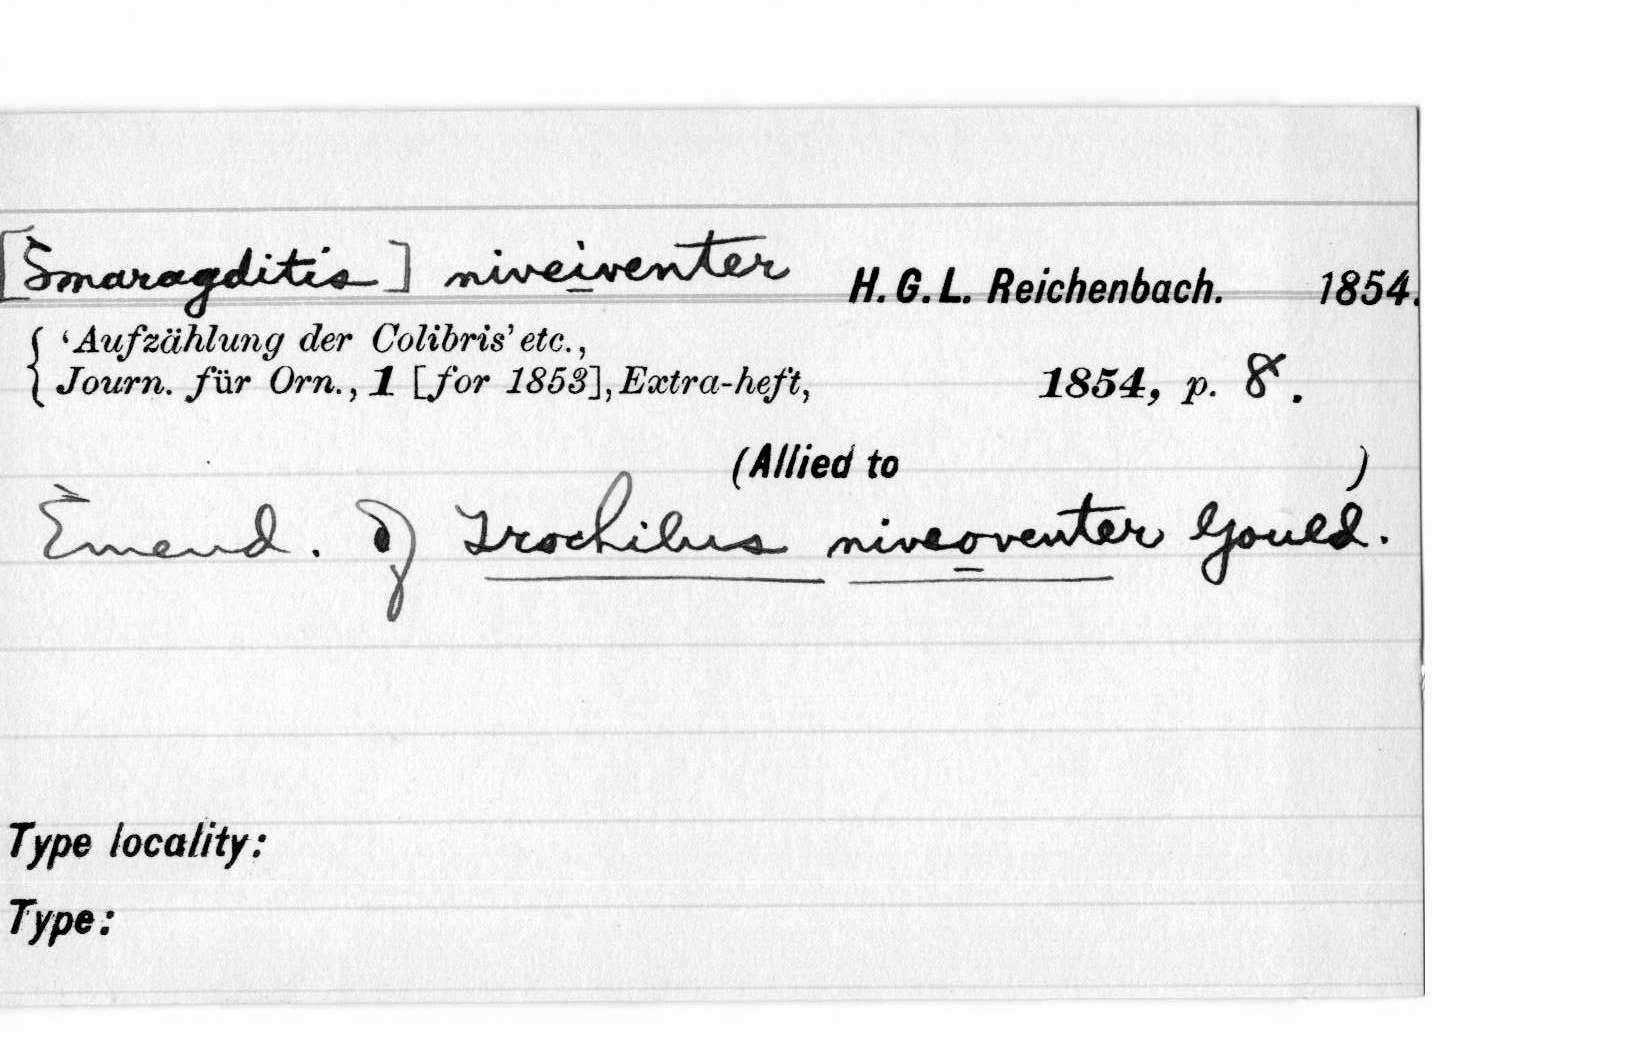 [Smaragditis] niveiventer H. G. L. Reichenbach. 1854.
'Aufzählung der Colibris' etc.,
Journ. für Orn., 1 [for 1853], Extra-heft, 1854, p. 8.
(Allied to )
Emend. of Trochilus niveoventer Gould.
Type locality:
Type: